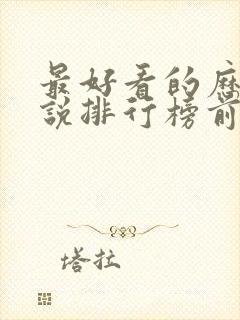 最好看的历
说排行榜前
塔拉